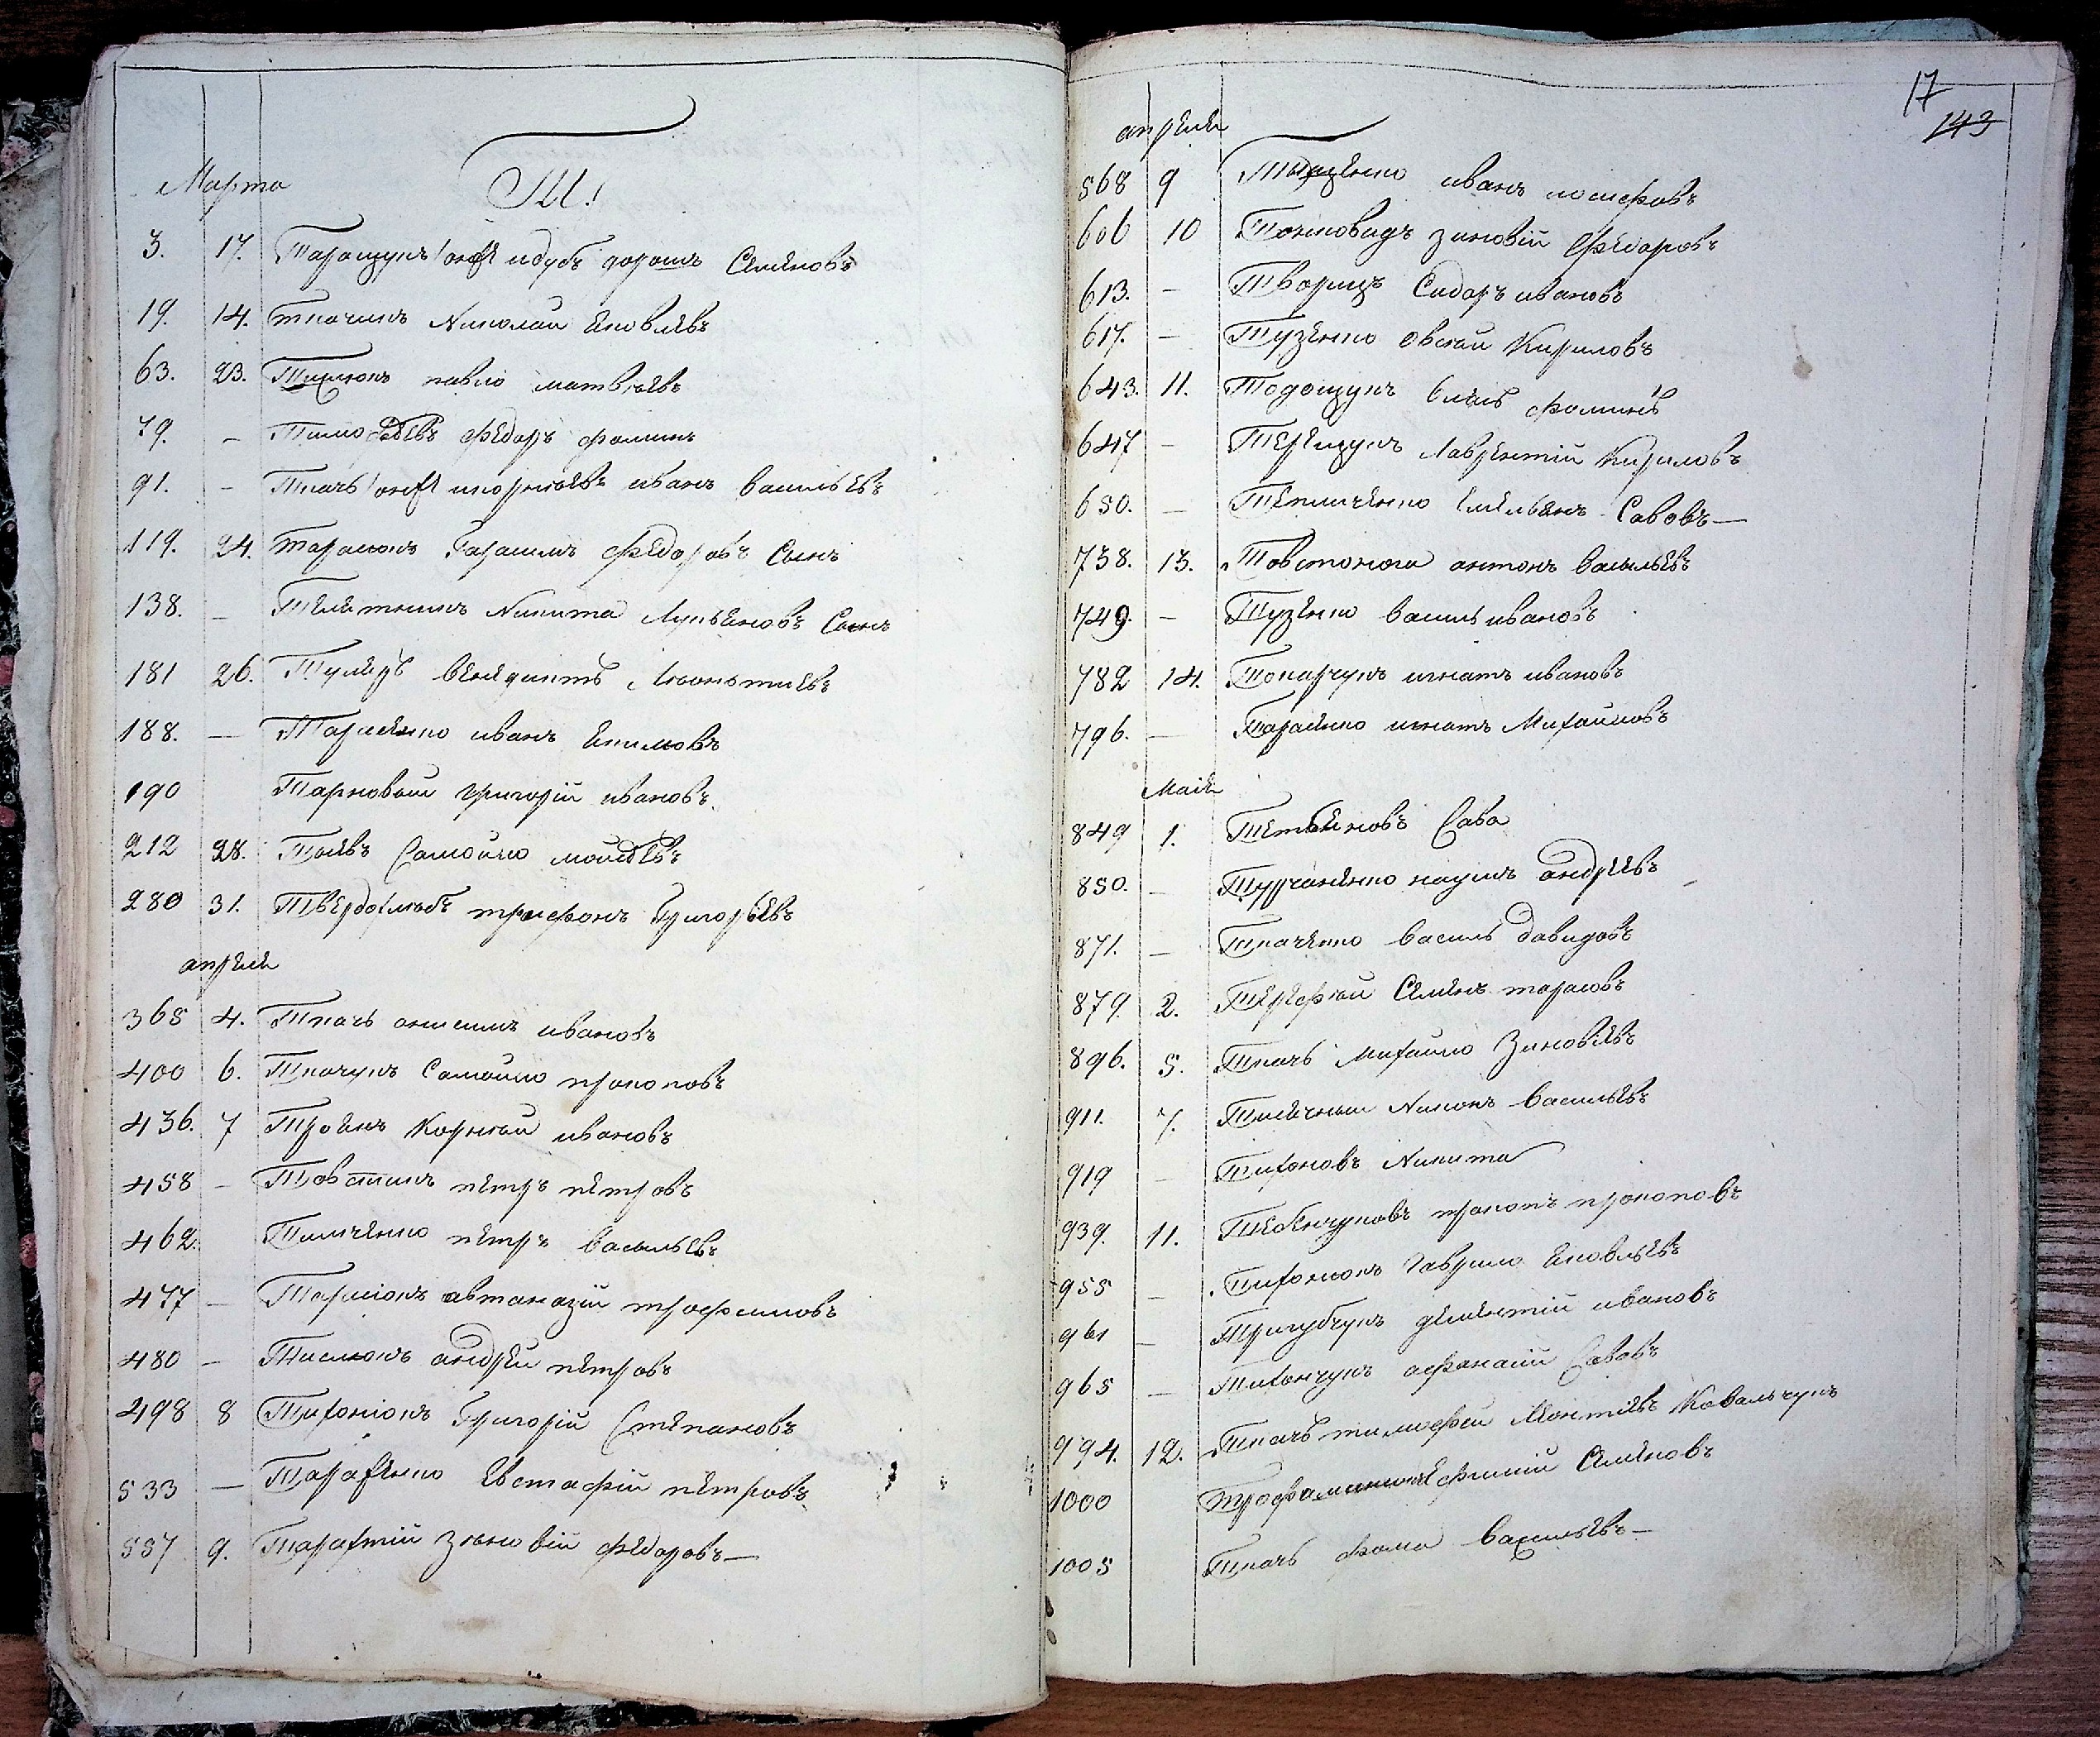 Марта
Т.
3. 17. Таращукъ онже идубъ дорошъ Семеновъ
19. 14. ткачикъ Николай Яковлевъ
63. 23. павло матвѣевъ
79. – Тимофѣевъ федоръ фоминъ
91. – Ткачь онже корнѣевъ иванъ васильевъ
119. 24. тарасюкъ Гарасимъ федоровъ Сынъ
138. – Телятникъ Никита Лукьяновъ Сынъ
181 26. венедиктъ Леонтиевъ
188. – Тарасенко иванъ Екимовъ
190 Тарновый григорій ивановъ
212 28. Самойло мойсѣевъ
280 31. Твердохлебъ трифонъ Григорьевъ
апреля
365 4. Ткачь анисимъ ивановъ
400 6. Ткачукъ Самойло прокоповъ
436. 7 Троянъ Корнѣй ивановъ
458 – Товстикъ петръ петровъ
462. Тимченко петръ васильевъ
477 – Тарасюкъ автаназій трофимовъ
480 – андрей петровъ
498 8 Тихонюкъ Григорій Степановъ
533 – Евстафій петровъ
557 9. Зиновій федоровъ—
17
143
апреля
568 9 иванъ
606 10 зиновій Федаровъ
613. – Творицъ Сидаръ ивановъ
617. – Тузенко Овсѣй Кириловъ
643. 11. Тодощукъ фоминъ
647 – Терещукъ Лаврентій Кириловъ
650. – Тепличенко Емельянъ Савовъ—
738. 13. Товстонога антонъ васильевъ
749. – Тузенко василь ивановъ
782 14. Токарчукъ игнатъ ивановъ
796. – Тарасенко игнатъ Михайловъ
Маія
849 1. Тетьяновъ Сава
850. – Турчаненко наумъ андреевъ
871. – Ткаченко василь давидовъ
879. 2. Семенъ тарасовъ
896. 5. Ткачь Михайло Зиновіевъ
911. 7. Никонъ васильевъ
919 – Тихоновъ Никита
939. 11. прокопъ прокоповъ
955 – Тихонюкъ Гаврило Яковлевъ
961 – Тригубчукъ дементій ивановъ
965 – Тихончукъ афанасій Савовъ
994. 12. Ткачь тимофей Леонтіевъ Ковальчукъ
1000 Семеновъ
1005 Ткачь фома васильевъ—